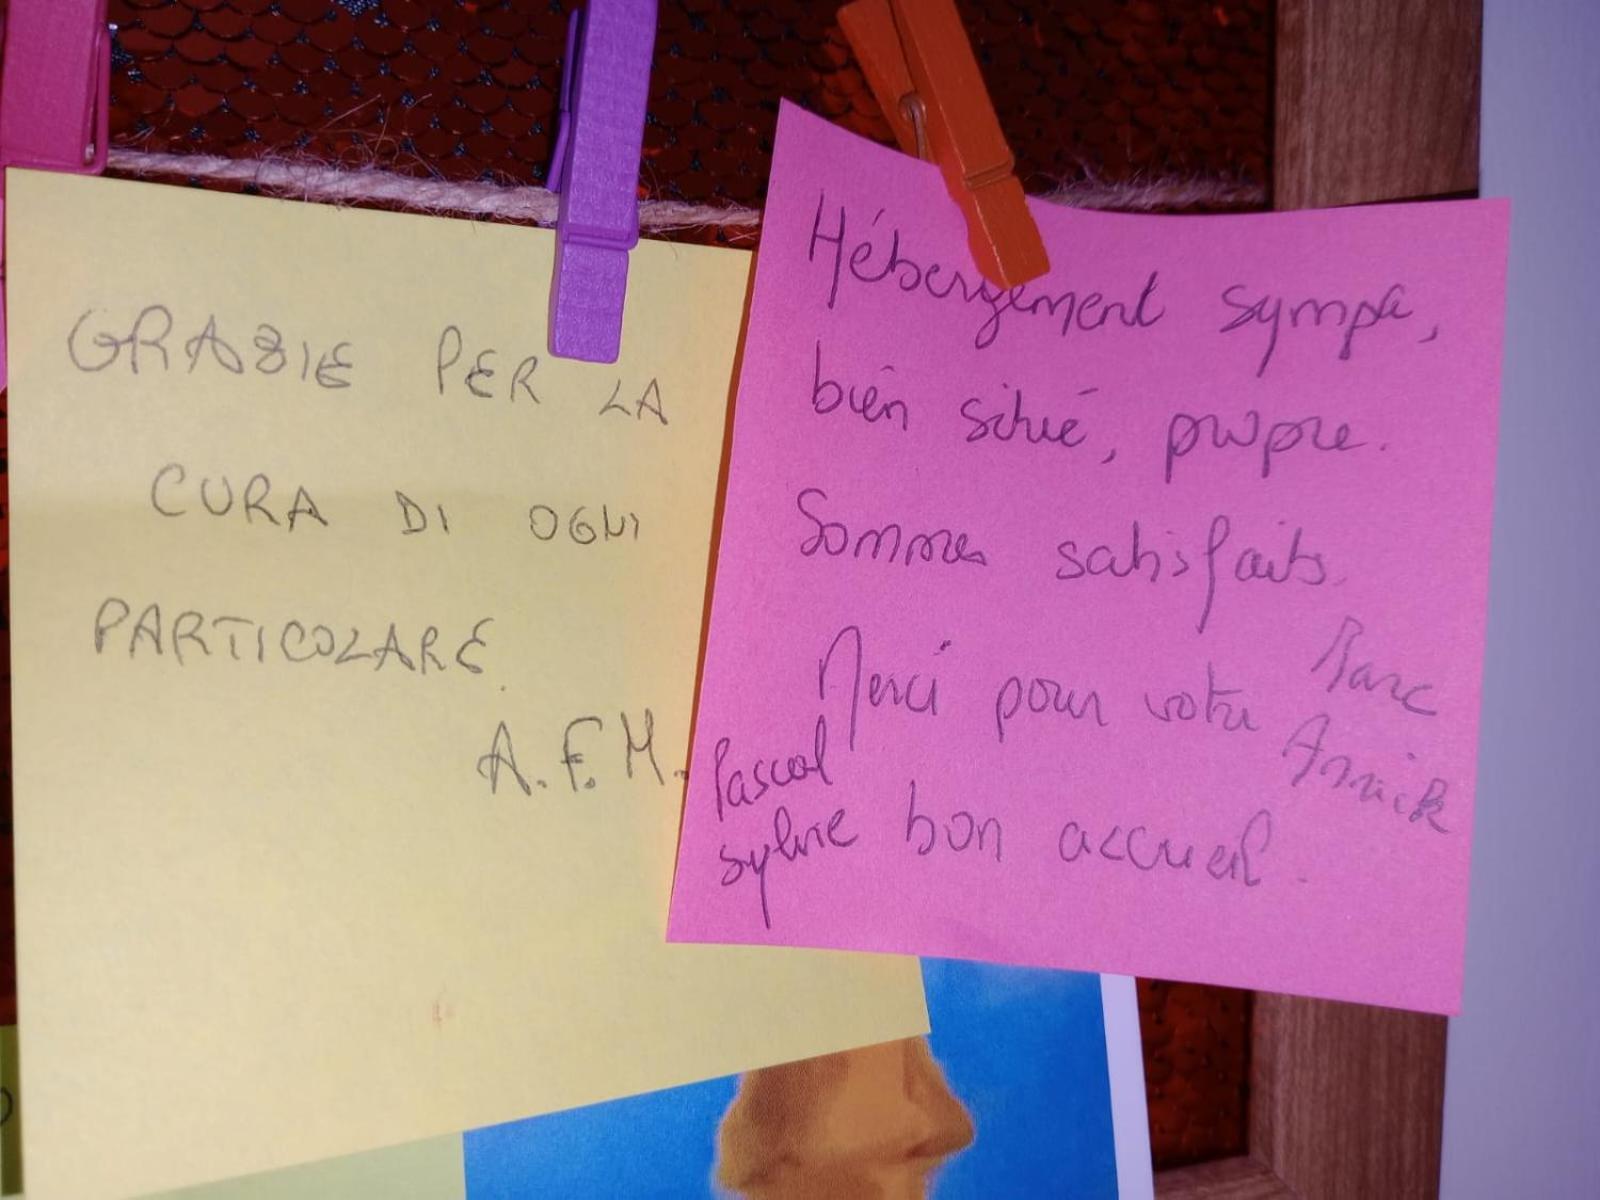 GRAZIE PER LA
CURA DI OGNI
PARTICOLARE.
A.F.M.
Hébergement sympa,
bien situé, propre.
Sommes satisfaits.
Merci pour votre
bon accueil.
Marc
Annick
Pascal
Sylvie